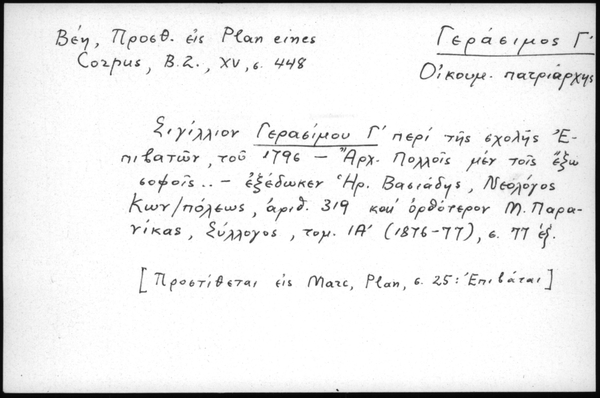 Βέη, Προσθ. εἰς Plan eines
Corpus, B.Z., XV, σ. 448
Γεράσιμος Γ'
Οἰκουμ. πατριάρχης
Σιγίλλιον Γερασίμου Γ' περί τῆς σχολῆς Ἐ-
πιβατῶν, τοῦ 1796 — "Ἀρχ. Πολλοῖς μέν τοῖς ἔξω
σοφοῖς.. — ἐξέδωκεν Ἡρ. Βασιάδης, Νεολόγος
Κων/πόλεως, ἀριθ. 319 καί ὀρθότερον Μ. Παρα-
νίκας, Σύλλογος, τομ. ΙΑ' (1876-77), σ. 77 ἑξ.
[Προστίθεται εἰς Marc, Plan, σ. 25: Ἐπιβάται]